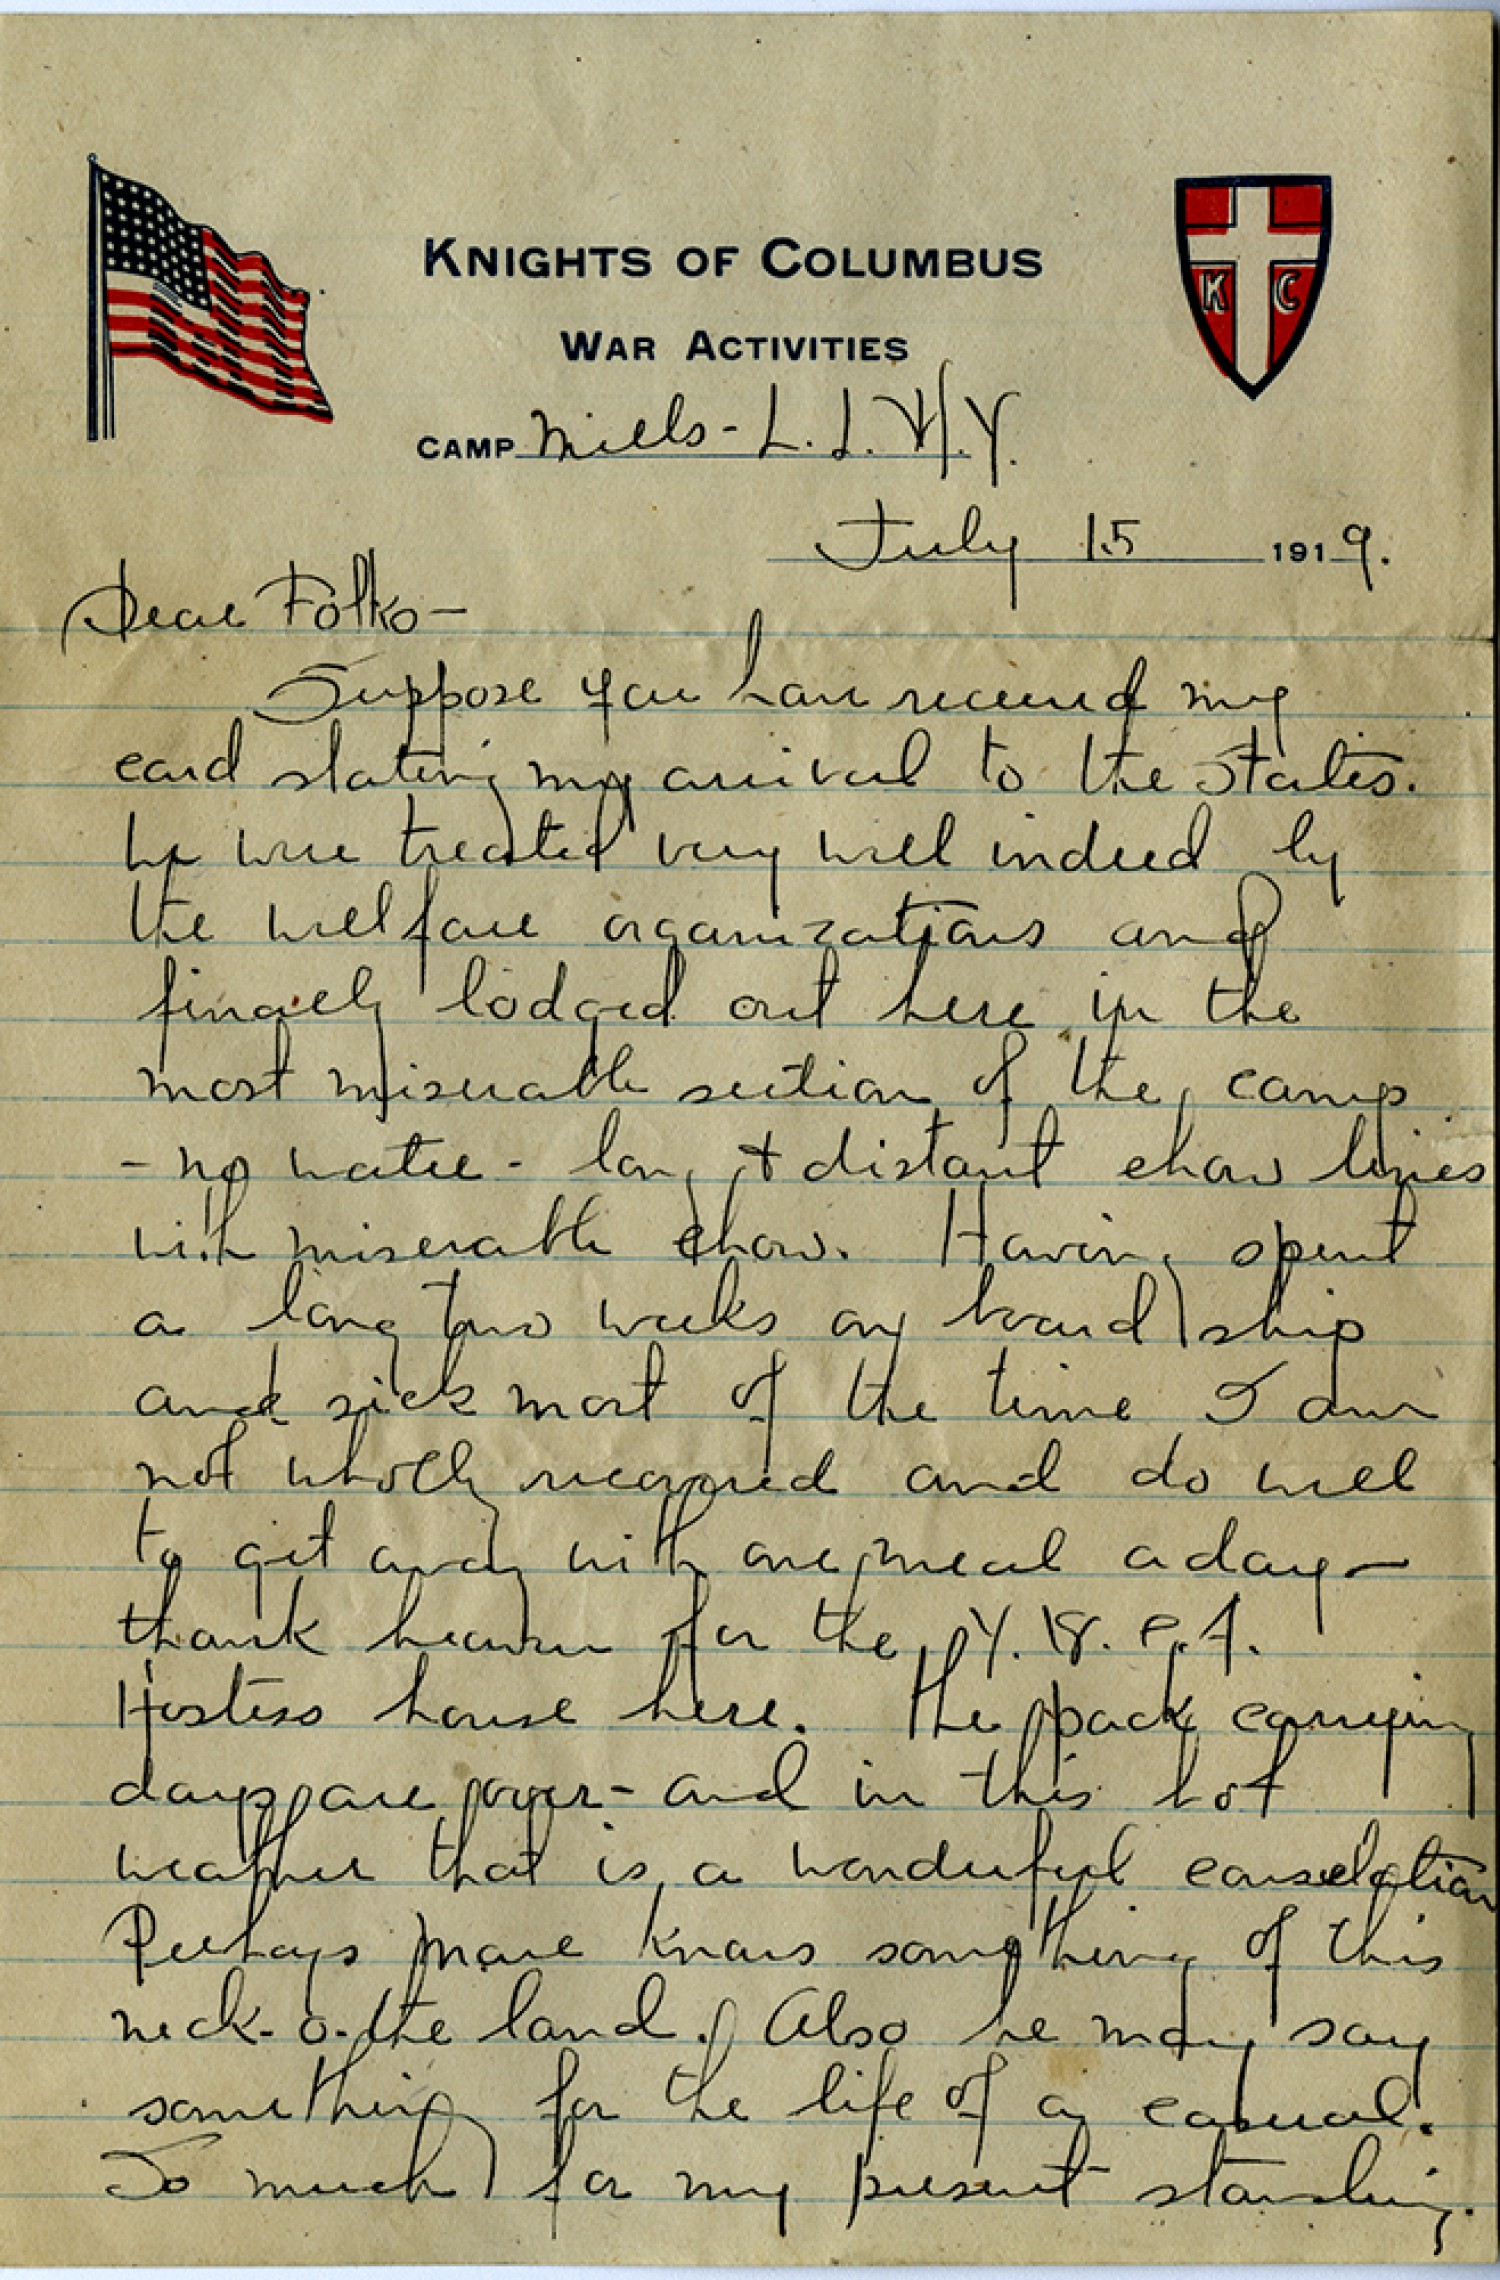 KNIGHTS OF COLUMBUS
WAR ACTIVITIES
K C
CAMP Mills - L. I. N.Y.
July 15 1919.
Dear Folks -
Suppose you have received my
card stating my arrival to the States.
We were treated very well indeed by
the welfare organizations and
finally lodged out here in the
most miserable section of the camp
- no water - long & distant chow lines
with miserable chow. Having spent
a long two weeks on board ship
and sick most of the time I am
not wholly recovered and do well
to get away with one meal a day -
thank heaven for the Y. W. C. A.
Hostess house here. The pack carrying
days are over - and in this hot
weather that is a wonderful consolation
Perhaps knows something of this
neck-o-the land. Also he may say
something for the life of a casual.
So much for my present standing.